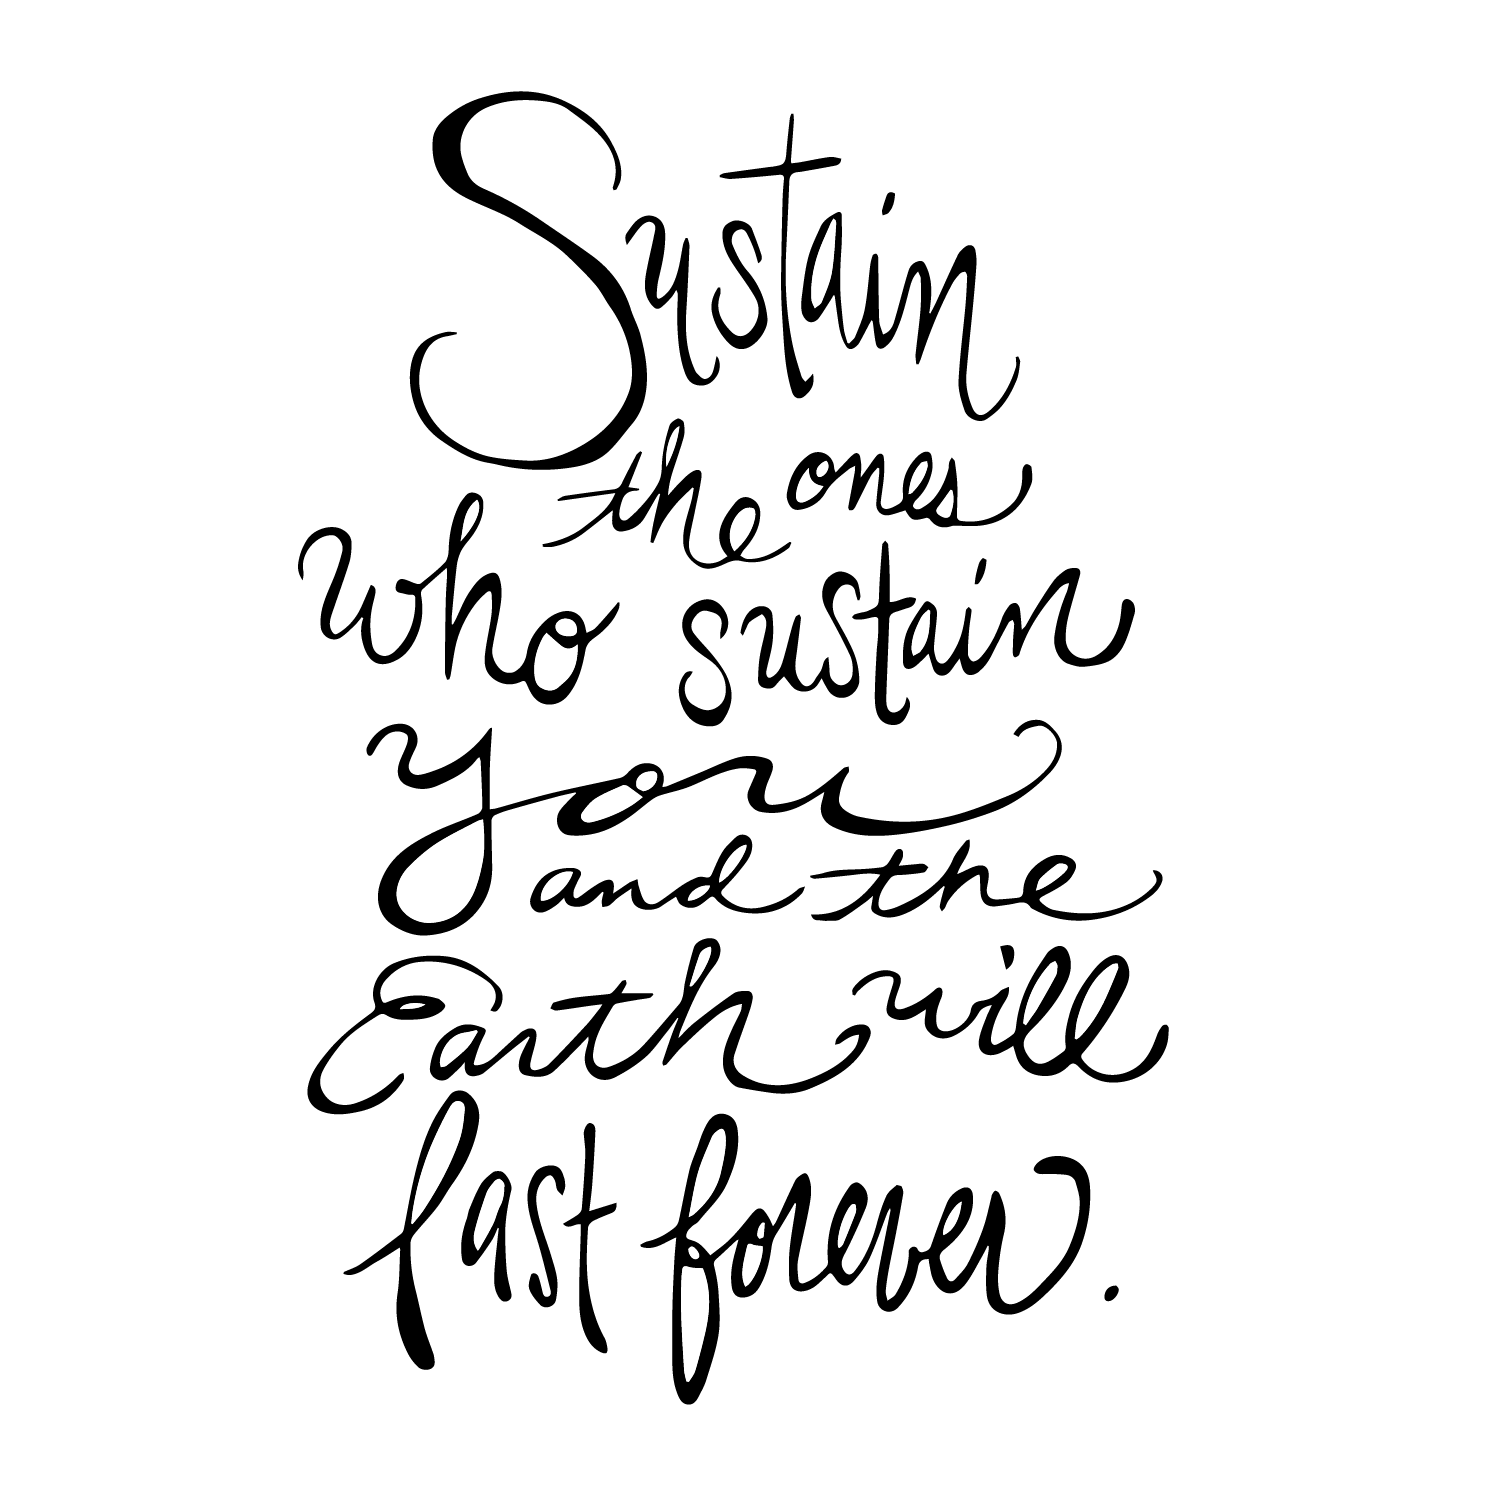 Sustain
the ones
who sustain
you
and the
Earth will
last forever.